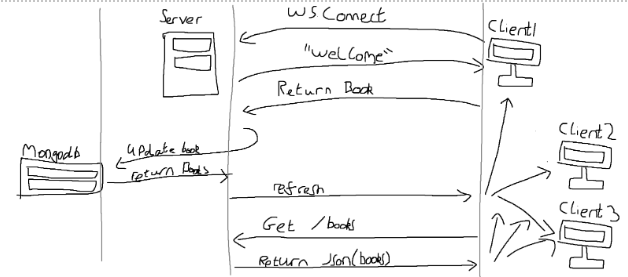 Server
WS.Connect
Client1
"Welcome"
Return Book
Client2
Mongodb
update book
return Books
refresh
Client3
Get /books
Return Json(books)